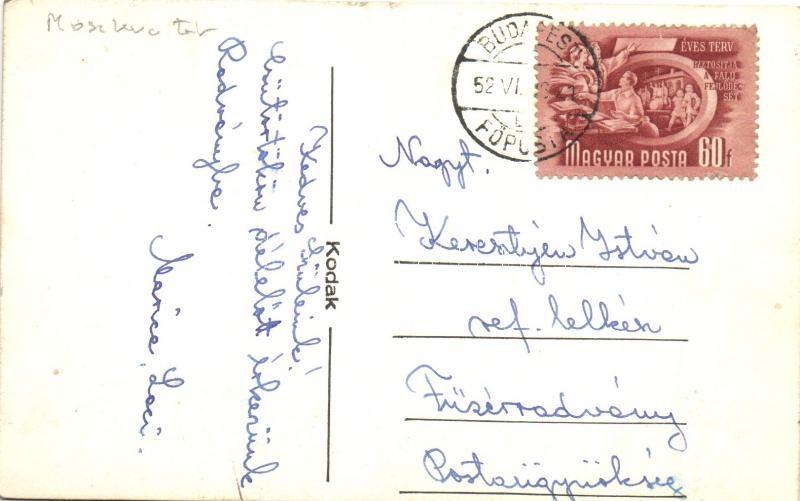 Moszkva tér
Kedves Szüleink!
Csütörtökön délelőtt érkezünk
Radványba.
Marica, Laci.
Kodak
BUDAPEST
52 VI.
FŐPOSTA
ÉVES TERV
BIZTOSÍTJA
A FALU
FEJLŐDÉ-
SÉT
MAGYAR POSTA 60f
Nagyt.
Keresztyén István
ref. lelkész
Füzérradvány
Postaügynökség